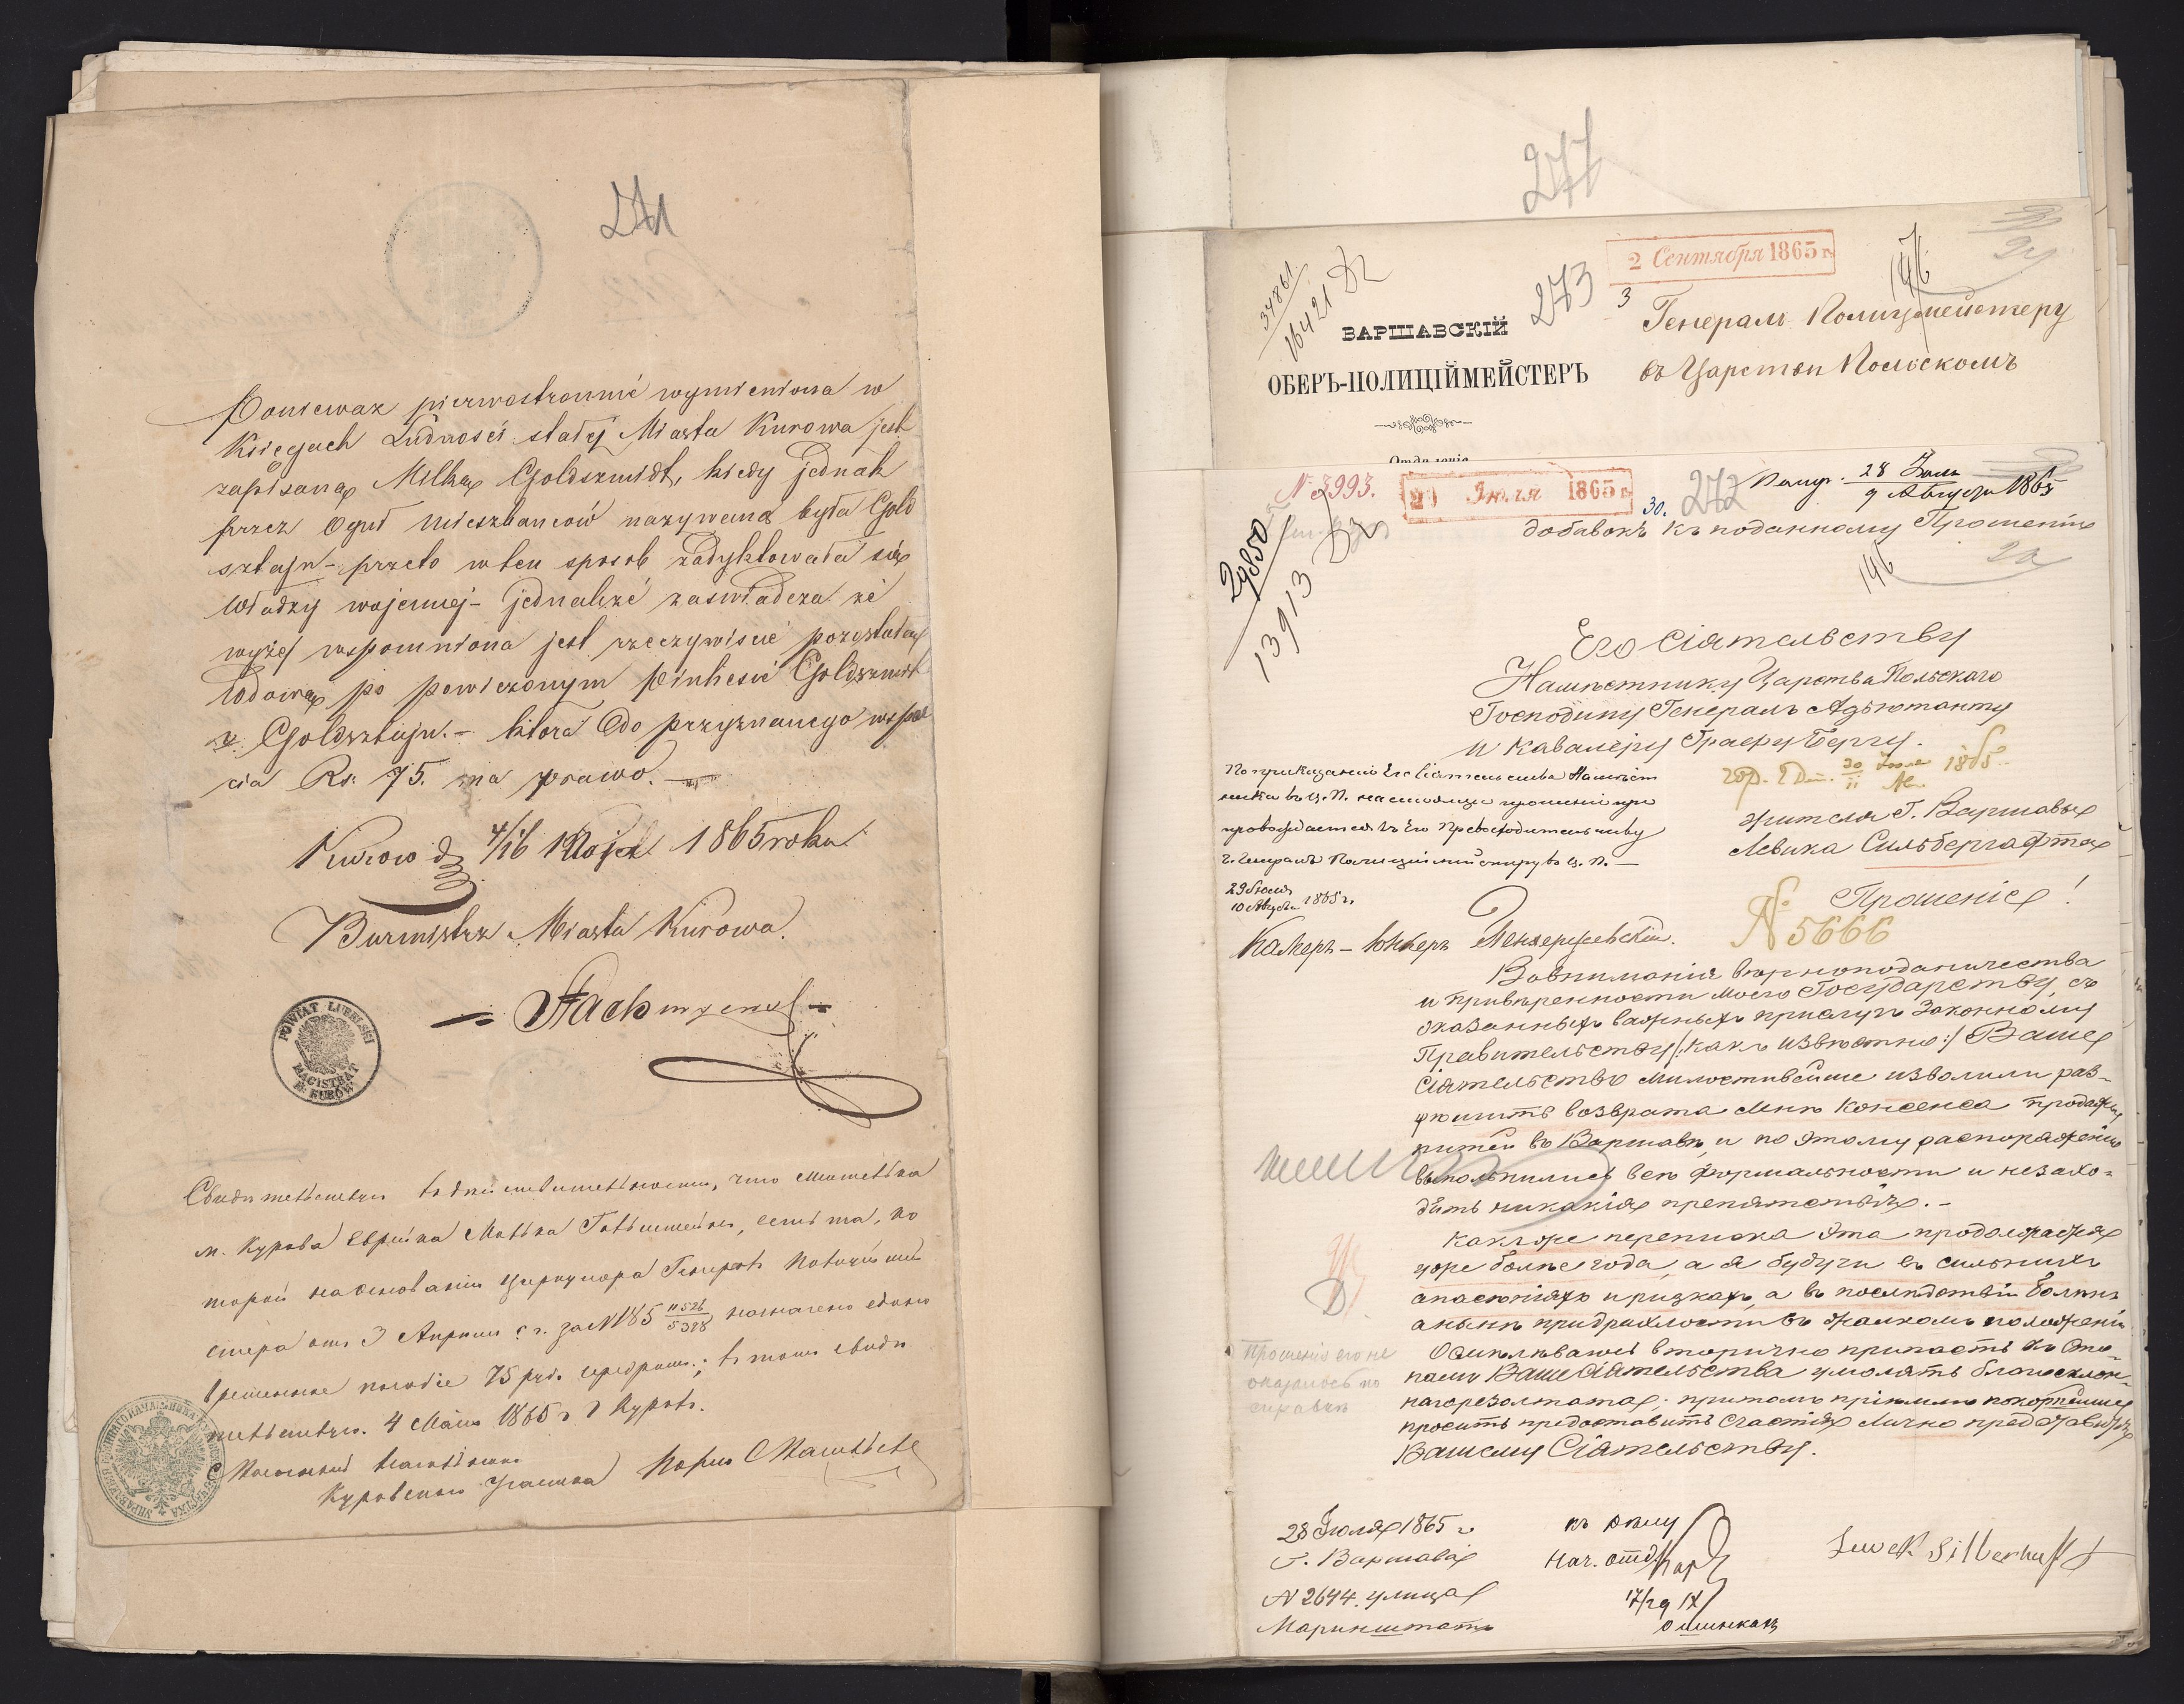 271
Poniewaz pierwostronnie wymieniona w
Księgach Ludności stałej Miasta Kurowa jest
zapisana Milka Goldszmidt, kiedy jednak
przez Oguł mieszkancow nazywana była Gold
sztajn - przeto w ten sposob zadyktowała się
Władzy wojennej - jednakże zaswiadcza że
wyżej wspomniona jest rzeczywiscie pozostałą
wdową po powieszonym Pinkesie Goldszmidt
v. Goldsztajn. - która do przyznanego wspar
cia Rs. 75. ma prawo. -
Kurow d 4/16 Maja 1865 roku
Burmistrz Miasta Kurowa.
POWIAT LUBELSKI
MAGISTRAT
M. KURÓW
м. Курова Еврейка Малка Гольдштейнъ, есть та, ко
торой на основаніи циркуляра Генералъ Полицій мей
стера отъ 3 Апрѣля с. г. за N 185 11526/5328 назначено едино
временное пособіе 75 руб. серебромъ; въ томъ свидѣ
тельствую. 4 Мая 1865 г. г Куровъ.
Куровскаго Участка
277
2 Сентября 1865 г.
34861
16421
273
3
146
ВАРШАВСКІЙ
ОБЕРЪ-ПОЛИЦІЙМЕЙСТЕРЪ
Генералъ Полицмейстеру
въ Царствѣ Польскомъ
N 3993.
29 Июля 1865 г.
30.
272
28 Июля
9 Августа 1865
29850
13913
добавокъ къ поданному Прошенію
146
Его Сіятельству
Намѣстнику Царства Польскаго
Господину Генералъ Адъютанту
и Кавалеру Графу Бергу.
По приказанію Его Сіятельства Намѣст
ника въ Ц. П. настоящее прошеніе пре
провождается къ Его Превосходительству
г. Генералъ Полиціймейстеру въ Ц. П. —
29 Июля
10 Августа 1865 г.
30 Июля
11 Ав. 1865
жителя Г. Варшавы
Левика Сильбергафта
Прошеніе!
N 5666
Камеръ-Юнкеръ
Вовниманія вѣрноподаничества
и привѣренности моего Государству, съ
оказанныхъ важныхъ прислугъ Законному
Правительству /:какъ извѣстно:/ Ваше
Сіятельство милостивѣйше изволили раз-
рѣшить возврата мнѣ консенса продажи
питей въ Варшавѣ, и по этому распоряженію
выполнились всѣ формальности и незахо-
дить никакія препятствія. -
Какже переписка эта продолжается
уже болѣе года, а я будучи въ сильныхъ
опасеніяхъ
Прошенія его не
оказалось по
справкѣ
Осмѣливаюсь вторично припасть къ сто-
памъ Ваше Сіятельства умолять благосклон-
просить предоставить счастія лично предъявить
Вашему Сіятельству.
28 Іюля 1865 г.
Г. Варшава
N 2644. улица
Мариенштатъ
къ дѣлу
Нач. отд.
17/29 IX
Lewek Silberhaft